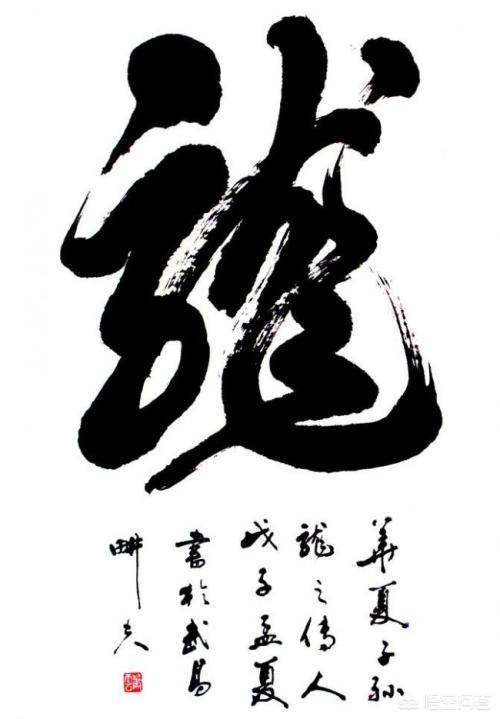 龍
華夏子孫
龍之傳人
戊子孟夏
書於武昌
畊夫
悟空问答